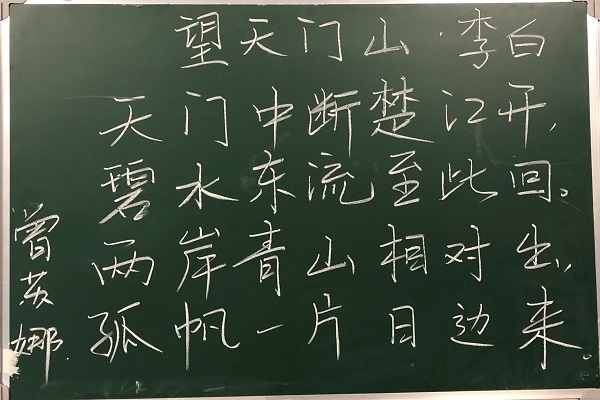 望天门山·李白
天门中断楚江开,
碧水东流至此回。
两岸青山相对出,
孤帆一片日边来。
曾英娜